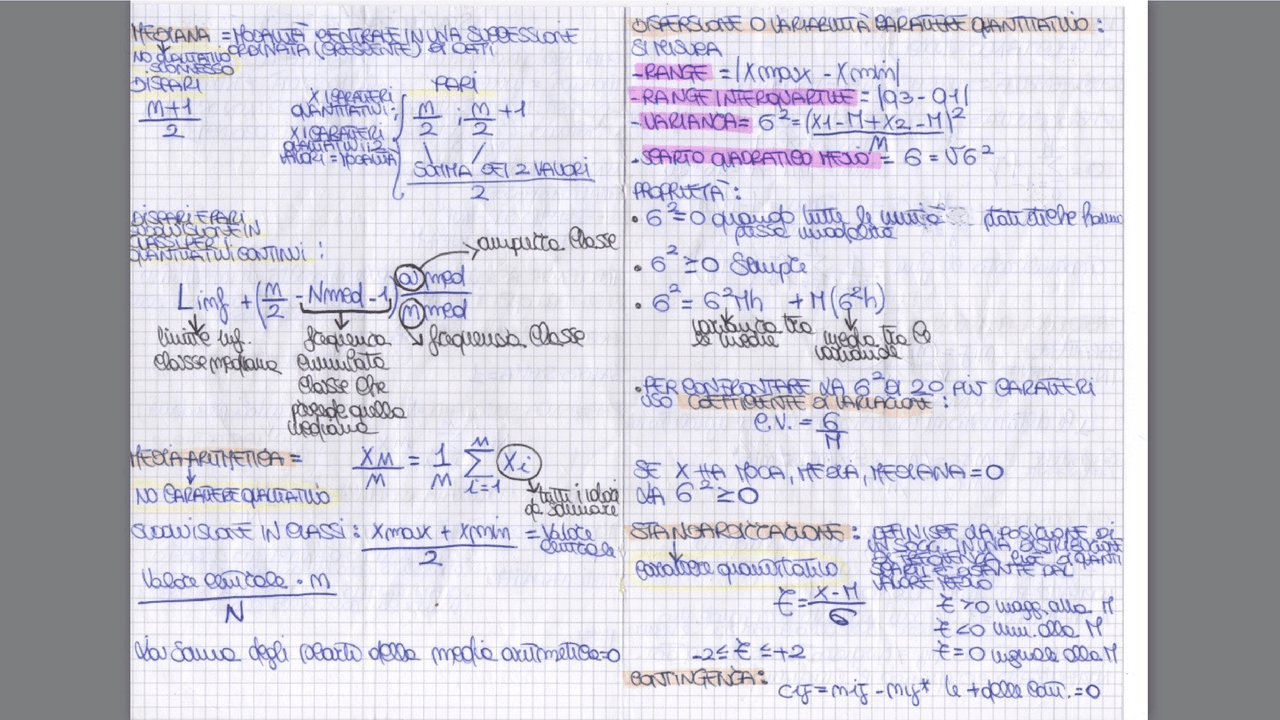 MEDIANA = MODALITÀ CENTRALE IN UNA SUCCESSIONE
ORDINATA (CRESCENTE) DI DATI
NO QUALITATIVO
SCONNESSO
DISPARI
n+1
2
PARI
X CARATTERI
QUANTITATIVI:
n/2 ; n/2 +1
X CARATTERI
QUALITATIVI: 2
VALORI = MODALITÀ
SOMMA DEI 2 VALORI
2
DISPARI E PARI
SUDDIVISIONE IN
CLASSI PER I
QUANTITATIVI CONTINUI:
ampiezza classe
Linf + (n/2 - Nmed-1) amed
nmed
limite inf.
classe mediana
frequenza
cumulata
classe che
precede quella
mediana
frequenza classe
MEDIA ARITMETICA =
xn/n = 1/n Σ xi
n
i=1
NO CARATTERE QUALITATIVO
tutti i valori
da sommare
SUDDIVISIONE IN CLASSI: xmax + xmin = valore
2
centrale
valore centrale · n
N
La somma degli scarti della media aritmetica=0
DISPERSIONE O VARIABILITÀ CARATTERE QUANTITATIVO:
SI MISURA
-RANGE = |xmax - xmin|
-RANGE INTERQUARTILE = |Q3 - Q1|
-VARIANZA= σ²=(x1-M+x2-M)²
n
-SCARTO QUADRATICO MEDIO = σ = √σ²
PROPRIETÀ:
• σ²=0 quando tutte le unità statistiche hanno
stessa modalità
• σ² ≥0 sempre
• σ² = σ²Mh + M(σ²h)
varianza tra
le medie
media tra le
varianze
•PER CONFRONTARE LA σ² DI 2 O PIÙ CARATTERI
USO COEFFICIENTE DI VARIAZIONE:
C.V. = σ
M
SE X HA MODA, MEDIA, MEDIANA=0
LA σ² ≥0
STANDARDIZZAZIONE: DEFINISCE LA POSIZIONE DI
UN SOGG. IN UNA DISTRIBUZIONE
DI FREQUENZA PER QUANTI
SCARTI È DISTANTE DAL
VALORE MEDIO
carattere quantitativo
z = x-M
σ
z >0 magg. alla M
z <0 min. alla M
z=0 uguale alla M
-2≤ z ≤+2
CONTINGENZA:
cij = nij - nij* le + delle cont. =0